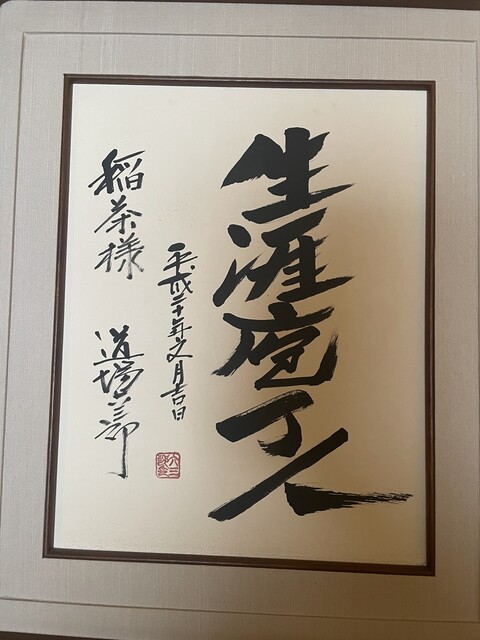 生涯庖丁人
平成二十年文月吉日
稲茶様 道場六三郎